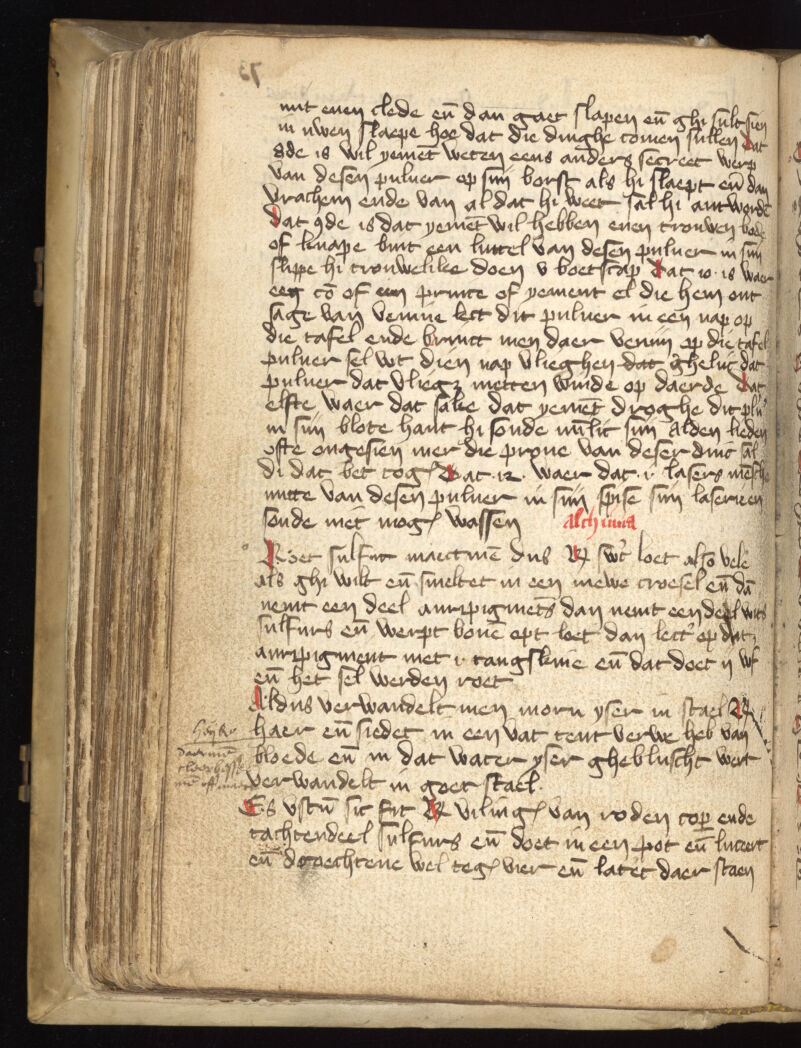 73
mit enen clede en̄ dan gaet slapen en̄ ghi sult sien
in uwen slaepe hoe dat die dinghe comen sullen Dat
8de is wil yemēt weten eens anders secreet werp
van desen puluer op sijn borst als hi slaept en̄ dan
vrachem ende van al dat hi weet sal hi antworde
Dat 9de is dat yemēt wil hebben enen trouwen bode
of knape bint een luttel van desen puluer in sijn
slippe hi trouwelike doen v boetscap Dat 10. is waer
een co of een prince of yement el die hem ont
sage van venine lect dit puluer in een nap op
die tafel ende brinct men daer venijn op die tafel
puluer sel wt dien nap vlieghen dat ghelijc dat
puluer dat vliegt metten winde op daerde Dat
elfte waer dat sake dat yemēt droghe dit plu
in sijn blote hant hi soude sijn alden lieden
ofte ongesien mer die proue van deser dinc sal
di dat bet tog Dat .12. waer dat .i. lasers mēsche
nutte van desen puluer in sijn spise sijn laserieen
soude niet mog wassen alchimia
Roet sulfur maectmē dus loet also vele
als ghi wilt en̄ smeltet in een niewe croesel en̄ dā
nemt een deel auripigmēts dan nemt een deel wits
sulfurs en̄ werpt bouē opt loet dan lect op dat
auripigment met .i. tangskine en̄ dat doet ij wf
en̄ het sel werden roet
Aldus verwandelt men morw yser in stael
haer en̄ siedet in een vat tent verwe heb van
bloede en̄ in dat water yser gheblusct wert
verwandelt in goet stael.
Es vstū sic fit viling van roden cop ende
tachtendeel sulfurs en̄ doet in een pot en̄ luceert
en̄ droechtene wel teg vier en̄ latet daer staen